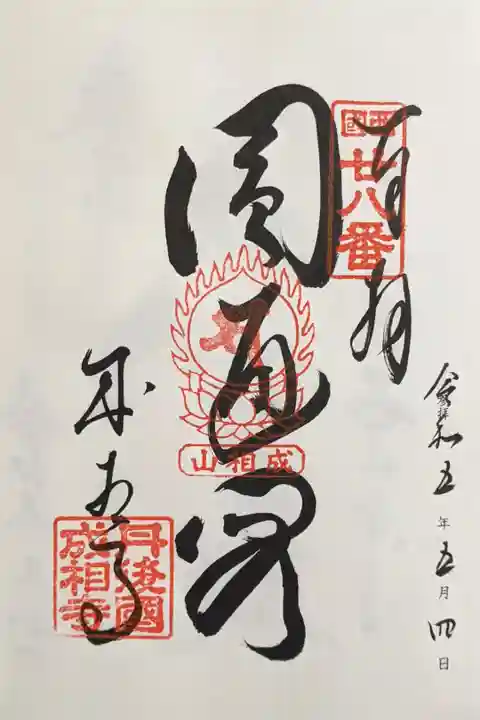 奉拝
西國
廿八番
圓通閣
成相山
成相寺
丹後國
成相寺
令和五年五月四日